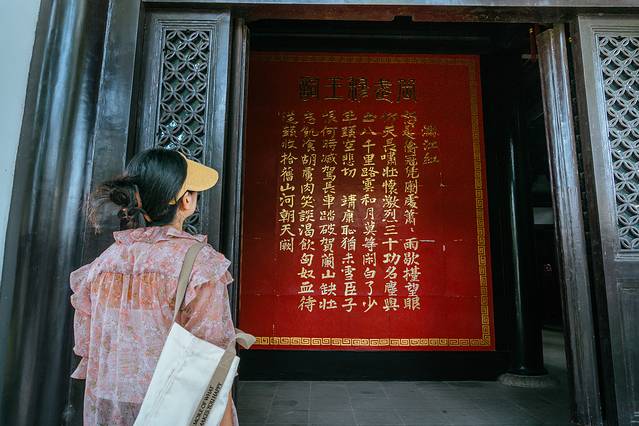 岳武穆王詞
滿江紅
怒髮衝冠凭闌處蕭〻雨歇擡望眼
仰天長嘯壯懷激烈三十功名塵與
土八千里路雲和月莫等閑白了少
年頭空悲切 靖康恥猶未雪臣子
恨何時滅駕長車踏破賀蘭山缺壯
志飢飡胡虜肉笑談渴飲匈奴血待
從頭收拾舊山河朝天闕
MORE OF WHAT
MAKES YOU HAPPY